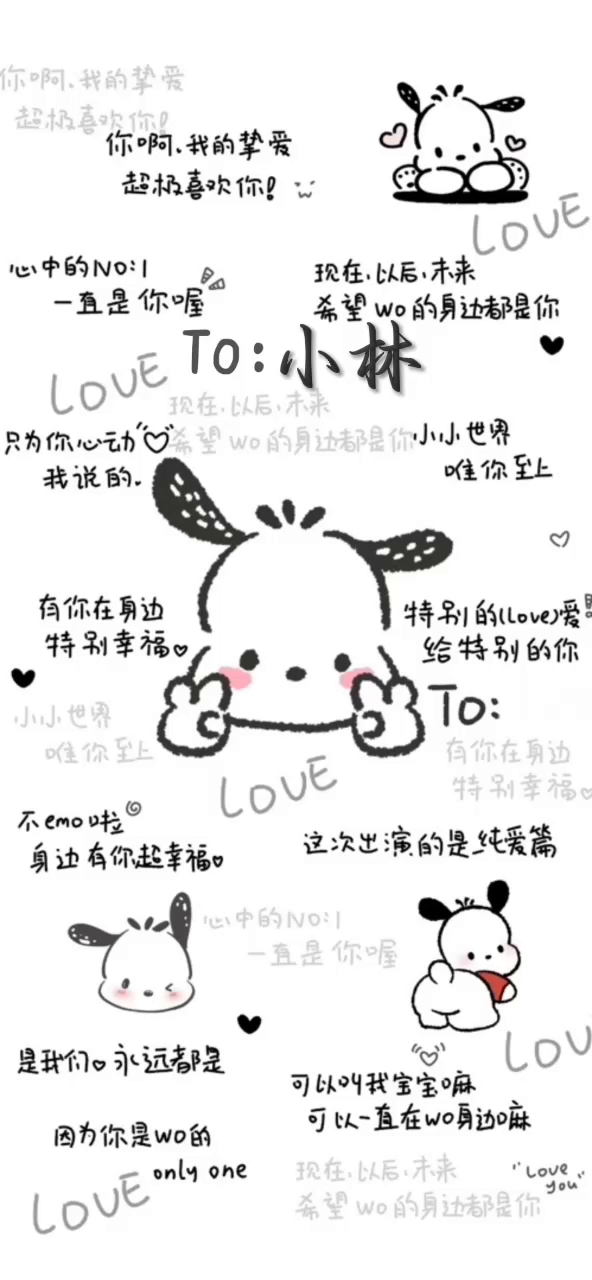 你啊、我的挚爱
超极喜欢你!
你啊、我的挚爱
超极喜欢你!
LOVE
心中的NO:1
一直是你喔
现在、以后、未来
希望wo的身边都是你
To:小林
LOVE
现在、以后、未来
希望wo的身边都是你
只为你心动
我说的.
小小世界
唯你至上
有你在身边
特别幸福
特别的(love)爱
给特别的你
To:
小小世界
唯你至上
有你在身边
特别幸福
LOVE
不emo啦
身边有你超幸福
这次出演的是纯爱篇
心中的NO:1
一直是你喔
LOV
是我们 永远都是
可以叫我宝宝嘛
可以一直在wo身边嘛
因为你是wo的
only one
现在、以后、未来
希望wo的身边都是你
"Love
you"
LOVE